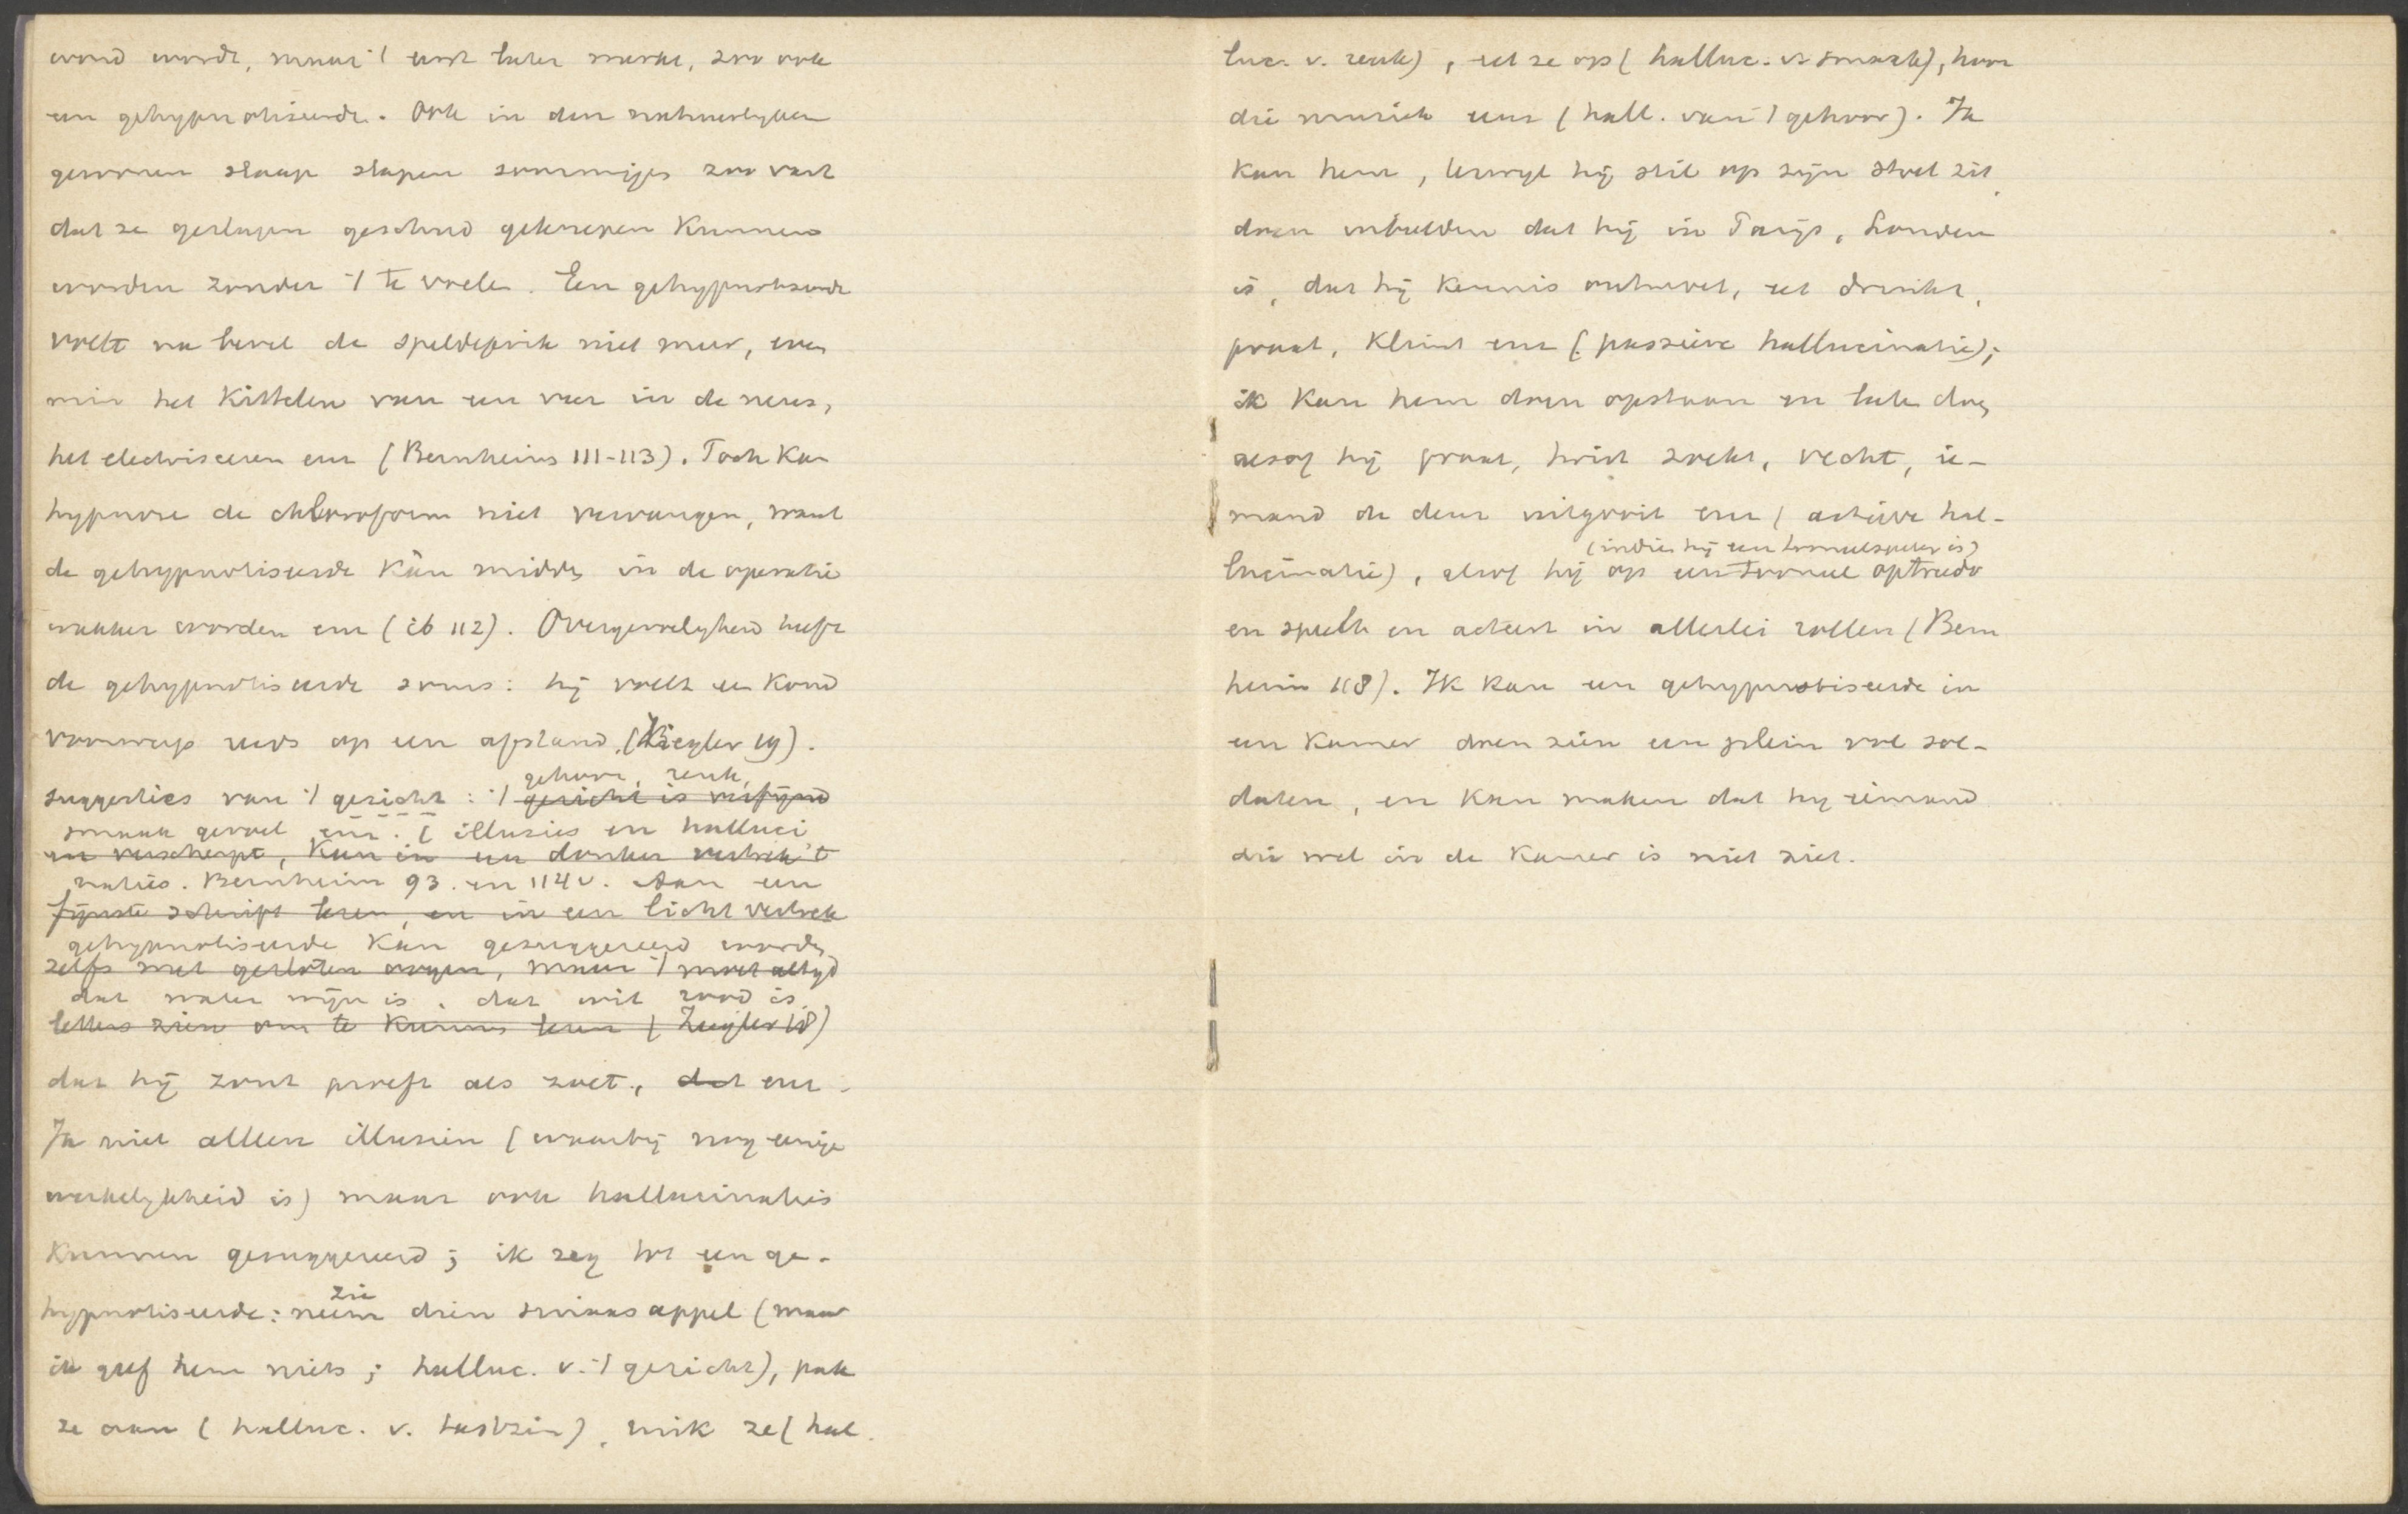 wond wordt, maar 't eerst later merkt, zoo ook
een gehypnotiseerde. Ook in den natuurlyken
gewonen slaap slapen sommigen zoo vast
dat ze geslagen geschud geknepen kunnen
worden zonder 't te voelen. Een gehypnotiseerde
voelt na bevel de speldeprik niet meer, even
min het kittelen van een veer in de neus,
het electriseeren enz (Bernheim 111-113). Toch kan
hypnose de chloroform niet vervangen, want
de gehypnotiseerde kan midden in de operatie
wakker worden enz (ib 112). Overgevoelyheid heeft
de gehypnotiseerde soms: hij voelt een koud
voorwerp reeds op een afstand. (Ziegler 19).
suggesties van 't gezicht: 't gehoor, reuk,
gezicht is verfijnd
smaak gevoel enz. ( illusies en halluci
en verscherpt, kan in een donker vertrek 't
naties. Bernheim 93. en 114 v. Aan een
fijnste schrift lezen, en in een licht vertrek
gehypnotiseerde kan gesuggereerd worden
zelfs met gesloten oogen, maar 't moet altyd
dat water wijn is, dat wit rood is
letters zien om te kunnen lezen (Ziegler 18)
dat hij zout proeft als zoet, dat enz.
Ja niet alleen illusien (waarbij nog eenige
werkelykheid is) maar ook hallucinaties
kunnen gesuggereerd; ik zeg tot een ge-
zie
hypnotiseerde: neem dien sinaasappel (maar
ik geef hem niets; halluc. v. 't gezicht), pak
ze aan (halluc. v. tastzin), ruik ze (hal
luc. v. reuk), eet ze op (halluc. v. smaak), hoor
die muziek eens (hall. van 't gehoor). Ja
kan hem, terwyl hij stil op zijn stoel zit,
doen inbeelden dat hij in Parijs, Londen
is, dat hij kennis ontmoet, eet drinkt,
praat, klimt enz (passieve hallucinatie);
ik kan hem doen opstaan en laten doen
alsof hij praat, twist zoekt, vecht, ie-
mand de deur uitgooit enz (actieve hal-
(indien hij een tooneelspeler is)
lucinatie), alsof hij op een tooneel optreedt
en speelt en acteert in allerlei rollen (Bern
heim 118). Ik kan een gehypnotiseerde in
een kamer doen zien een plein vol sol-
daten, en kan maken dat hy iemand
die wel in de kamer is niet ziet.